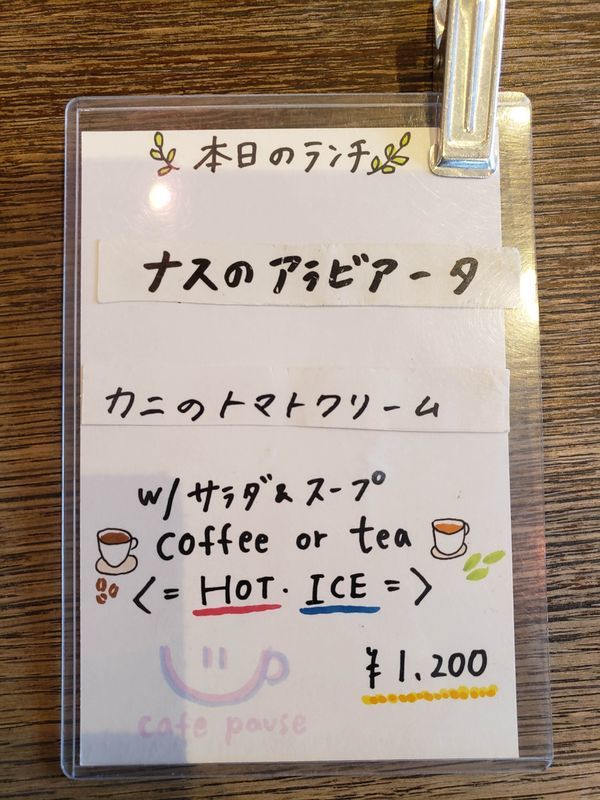 本日のランチ
ナスのアラビアータ
カニのトマトクリーム
w/サラダ&スープ
coffee or tea
<= HOT・ICE =>
¥1,200
cafe pause